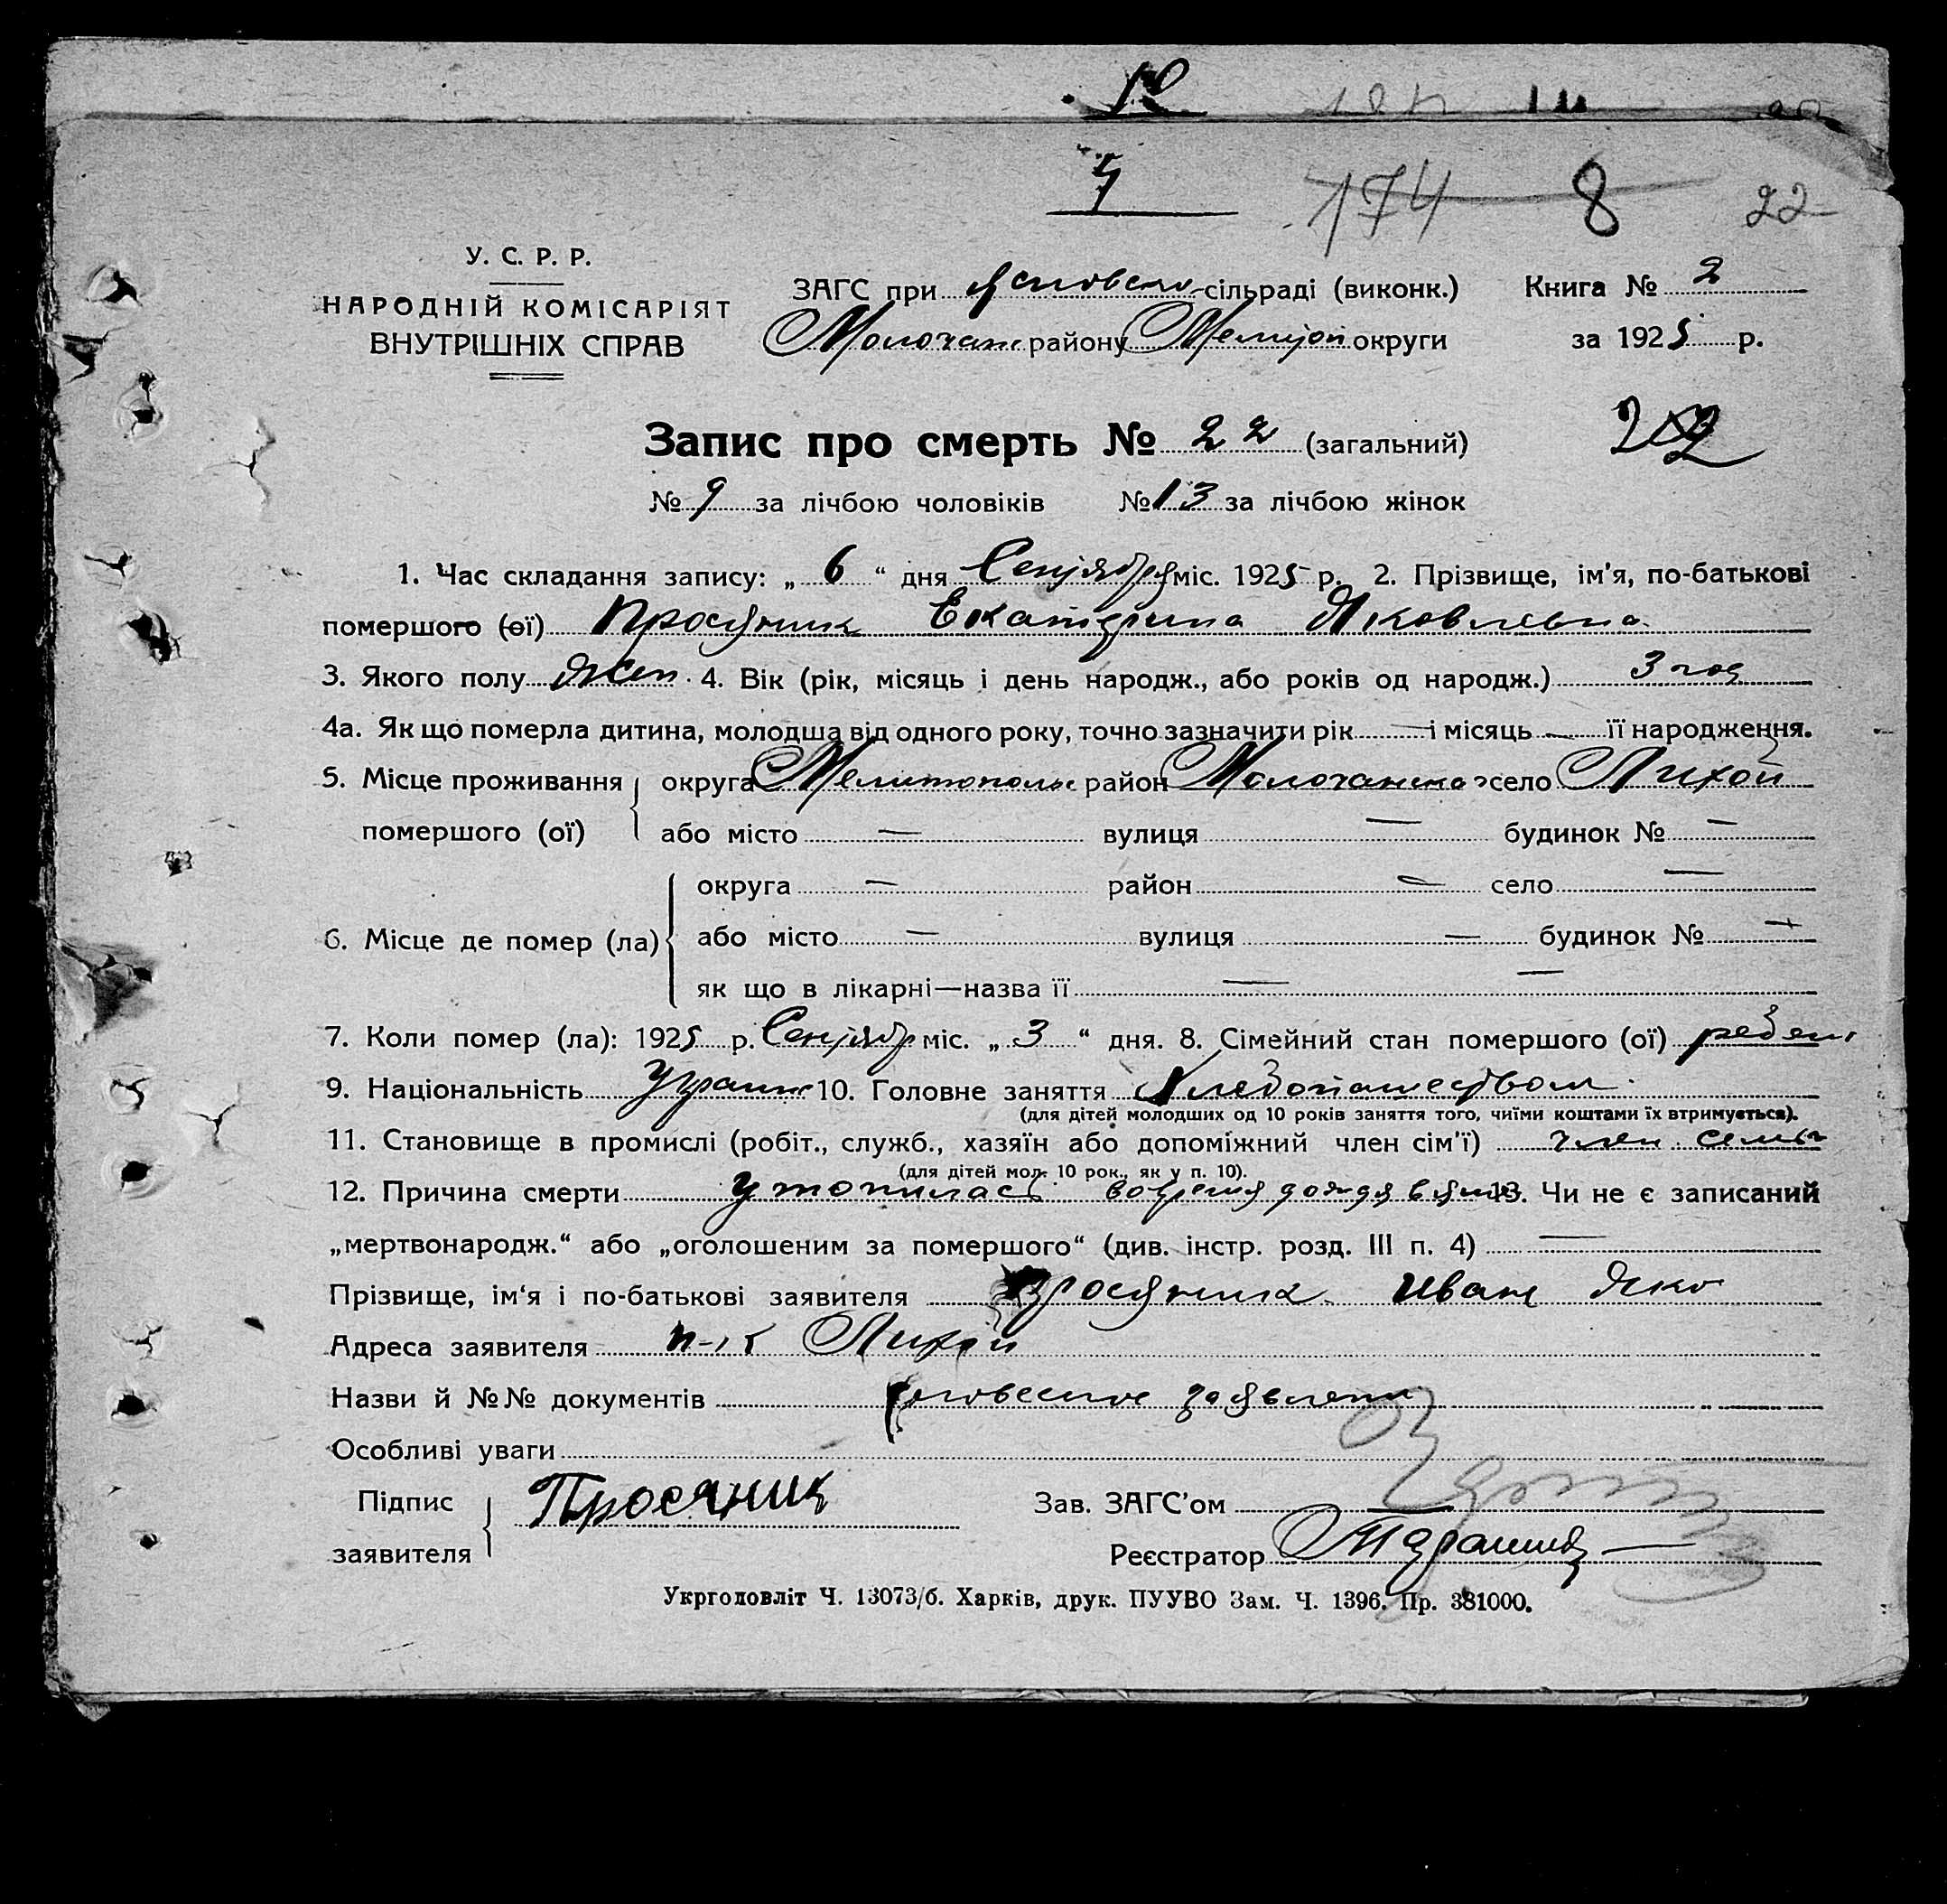 174 8 22
У. С. Р. Р.
НАРОДНІЙ КОМІСАРІЯТ
ВНУТРІШНІХ СПРАВ
ЗАГС при сільраді (виконк.) Книга № 2
Молочан району Мелитоп округи за 1925 р.
Запис про смерть № 22 (загальний)
№ 9 за лічбою чоловіків № 13 за лічбою жінок
1. Час складання запису: „ 6 “ дня Сентября міс. 1925 р. 2. Прізвище, ім'я, по-батькові
помершого (ої) Просяник Екатерина Яковлевна
3. Якого полу жен. 4. Вік (рік, місяць і день народж., або років од народж.) 3 год
4а. Як що померла дитина, молодша від одного року, точно зазначити рік — і місяць — її народження.
5. Місце проживання округа Мелитопольс район Молочанско село Лихой
помершого (ої) або місто — вулиця — будинок № —
округа — район — село —
6. Місце де помер (ла) або місто — вулиця — будинок № —
як що в лікарні—назва її — —
7. Коли помер (ла): 1925 р. Сентябр міс. „ 3 “ дня. 8. Сімейний стан помершого (ої) ребен
9. Національність Украин 10. Головне заняття Хлебопашеством
(для дітей молодших од 10 років заняття того, чиїми коштами їх втримується).
11. Становище в промислі (робіт., служб., хазяїн або допоміжний член сім'ї) член семьи
(для дітей мол. 10 рок., як у п. 10).
12. Причина смерти утопилась во время дождя в 13. Чи не є записаний
„мертвонародж.“ або „оголошеним за помершого“ (див. інстр. розд. III п. 4) —
Прізвище, ім'я і по-батькові заявителя Просяник Иван Яко
Адреса заявителя Лихой
Назви й №№ документів словесное заявлени
Особливі уваги
Підпис Просяник Зав. ЗАГС'ом
заявителя Реєстратор
Укрголовліт Ч. 13073/б. Харків, друк. ПУУВО Зам. Ч. 1396. Пр. 381000.